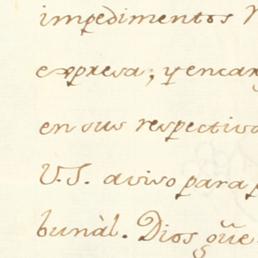 impedimentos
expresa; y encar
en sus respectivo
V.S. aviso para p
bunàl. Dios gũe